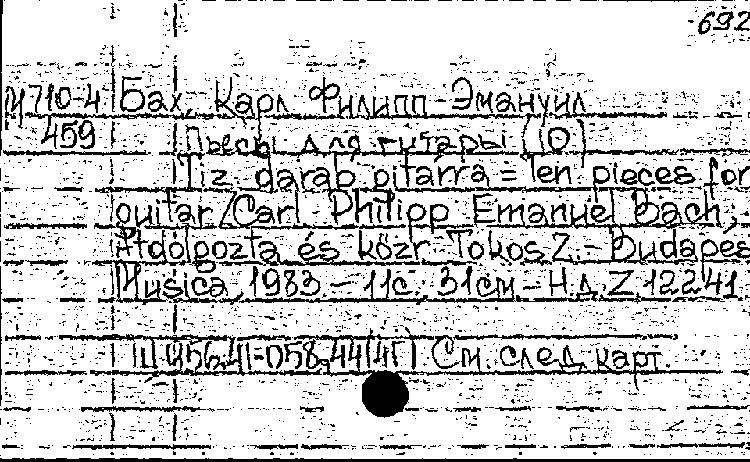 692
М710-4 Бах, Карл Филипп Эмануил
459 Пьесы для гитары (10)
Tiz darab gitárra = Ten pieces for
guitar / Carl Philipp Emanuel Bach;
Átdolgozta és közr. Tokos Z. - Budapes
Musica, 1983. - 11с.; 31см. - Н.д. Z. 12241.
Щ 956.41-058.44(4Г) См. след. карт.